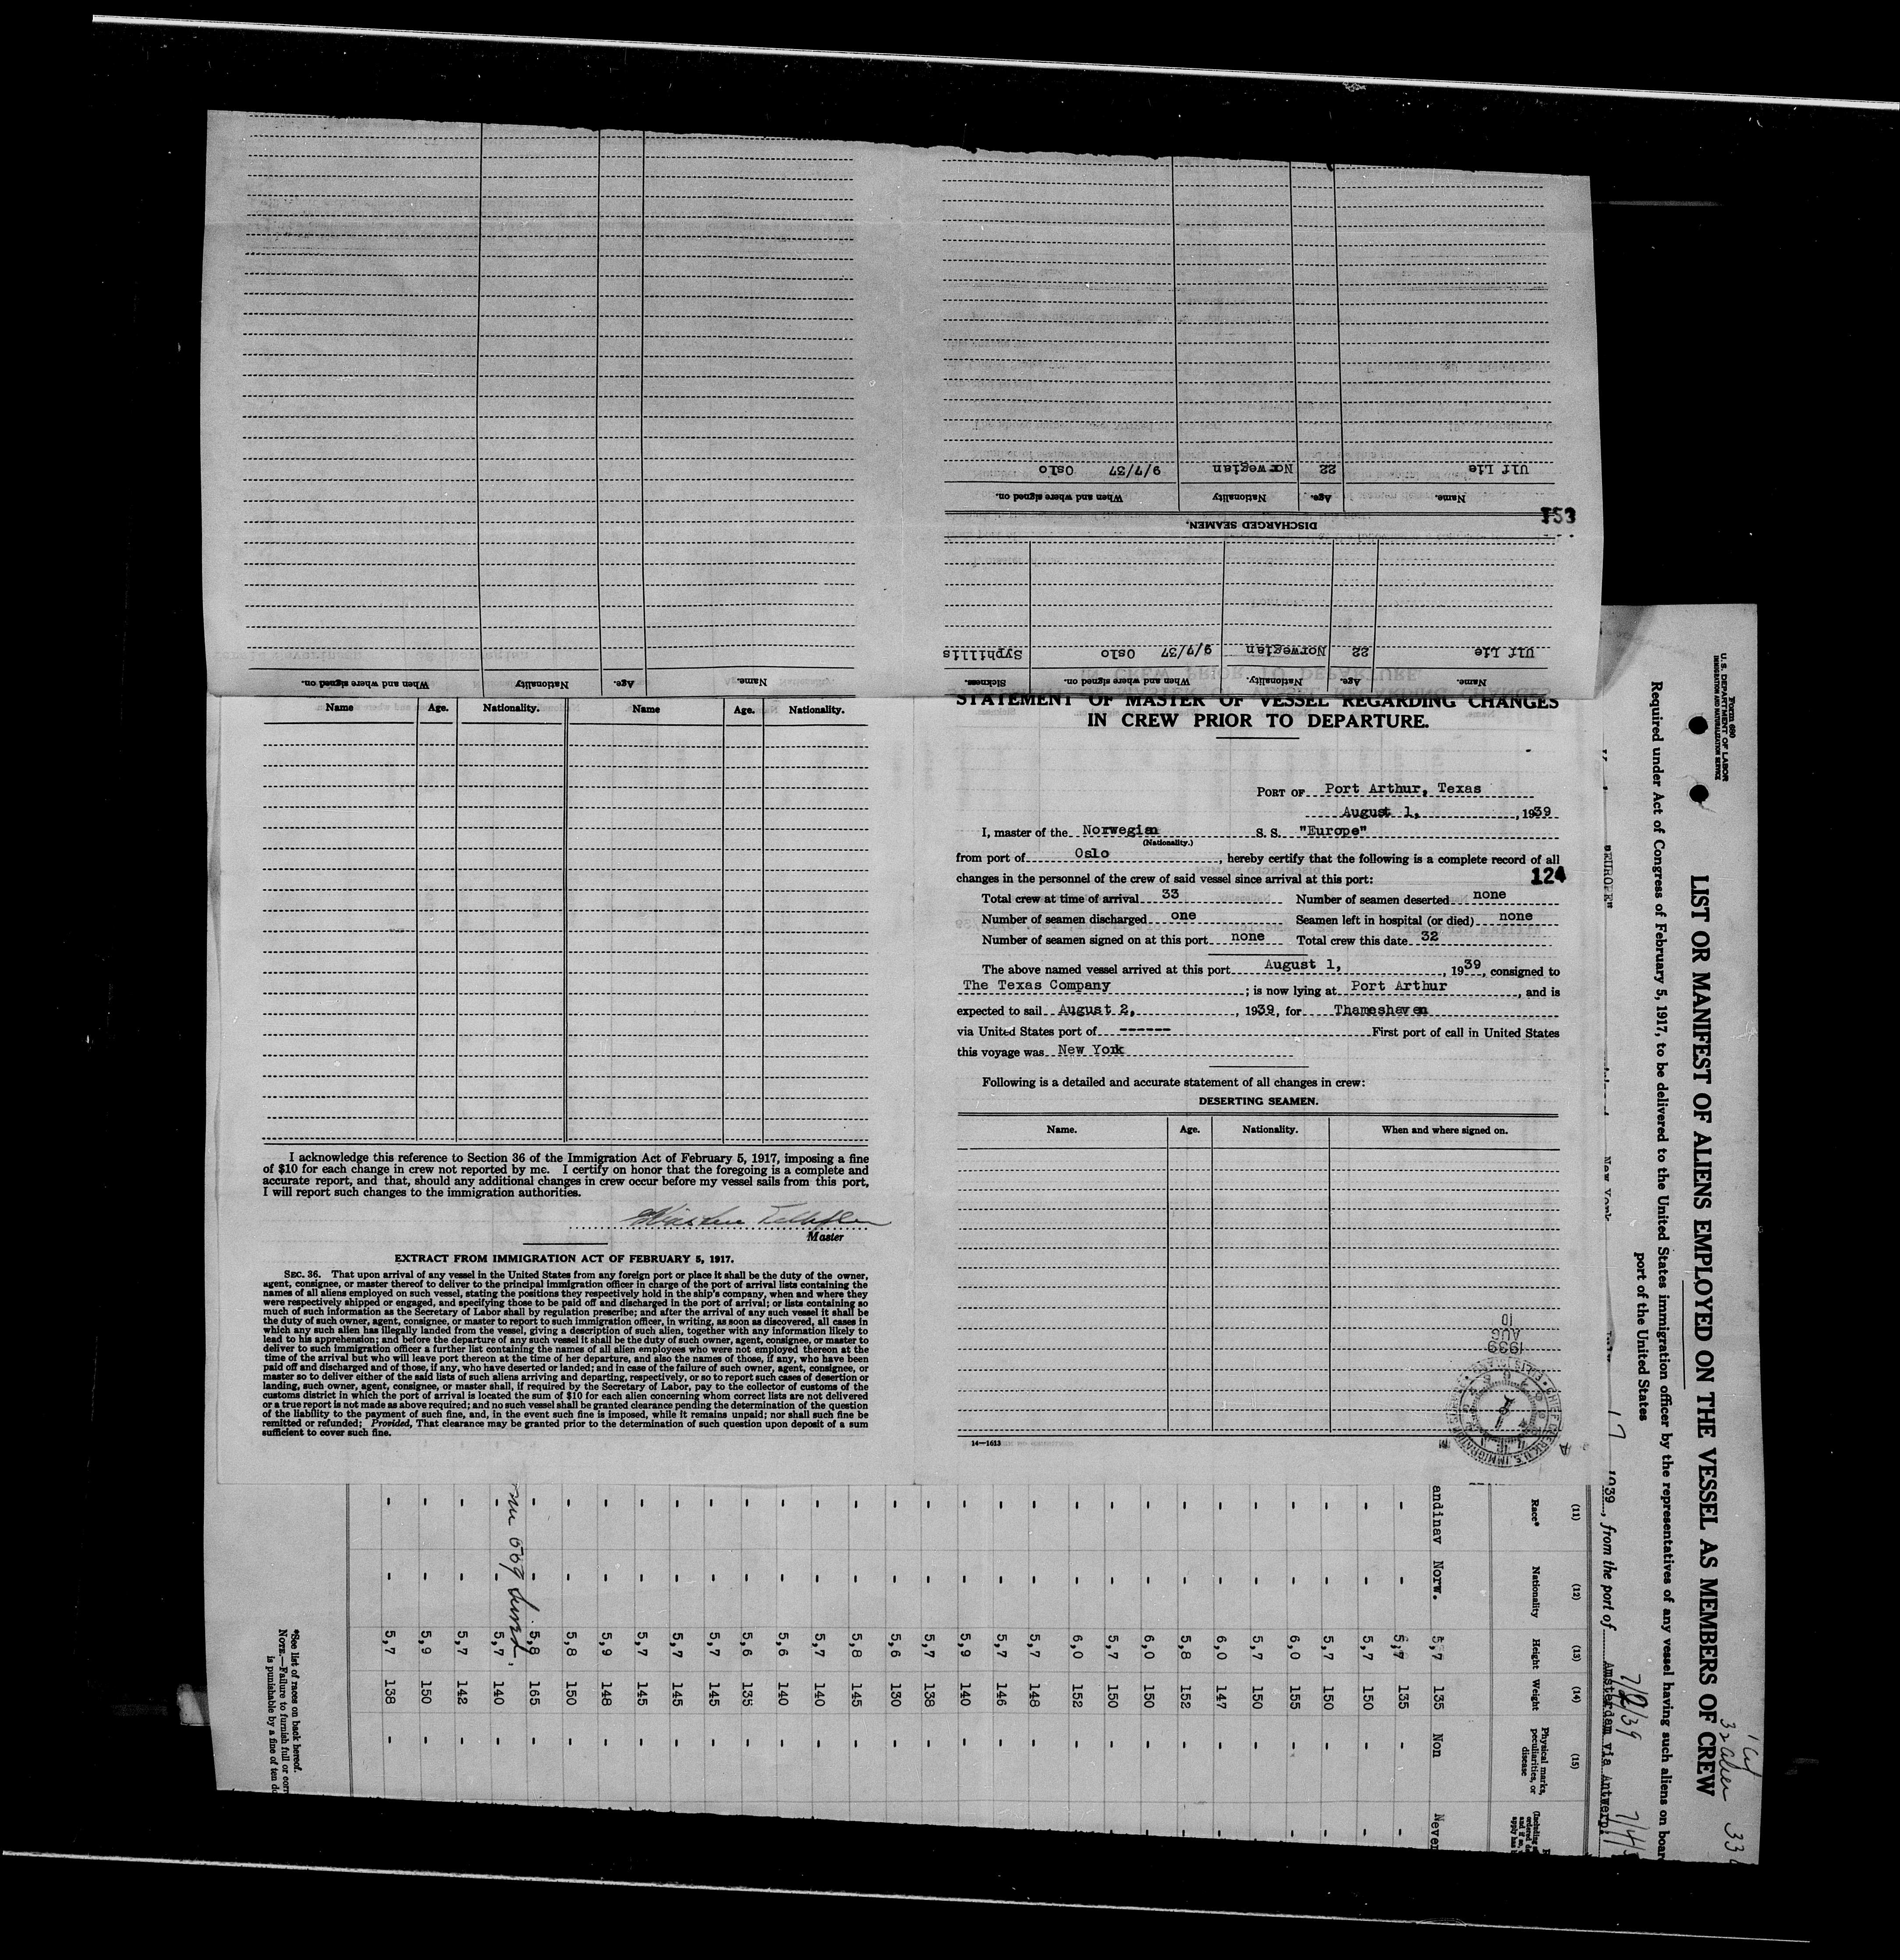 Ulf Lie 22 Norwegian 9/7/37 Oslo
Name. Age. Nationality When and where signed on.
DISCHARGED SEAMEN.
153
Ulf Lie 22 Norwegian 9/7/37 Oslo Syphillis
Name. Age. Nationality. When and where signed on. Sickness.
Name. Age. Nationality When and where signed on.
Name Age. Nationality. Name Age. Nationality.
I acknowledge this reference to Section 36 of the Immigration Act of February 5, 1917, imposing a fine
of $10 for each change in crew not reported by me. I certify on honor that the foregoing is a complete and
accurate report, and that, should any additional changes in crew occur before my vessel sails from this port,
I will report such changes to the immigration authorities.
Master
EXTRACT FROM IMMIGRATION ACT OF FEBRUARY 5, 1917.
SEC. 36. That upon arrival of any vessel in the United States from any foreign port or place it shall be the duty of the owner,
agent, consignee, or master thereof to deliver to the principal immigration officer in charge of the port of arrival lists containing the
names of all aliens employed on such vessel, stating the positions they respectively hold in the ship's company, when and where they
were respectively shipped or engaged, and specifying those to be paid off and discharged in the port of arrival; or lists containing so
much of such information as the Secretary of Labor shall by regulation prescribe; and after the arrival of any such vessel it shall be
the duty of such owner, agent, consignee, or master to report to such immigration officer, in writing, as soon as discovered, all cases in
which any such alien has illegally landed from the vessel, giving a description of such alien, together with any information likely to
lead to his apprehension; and before the departure of any such vessel it shall be the duty of such owner, agent, consignee, or master to
deliver to such immigration officer a further list containing the names of all alien employees who were not employed thereon at the
time of the arrival but who will leave port thereon at the time of her departure, and also the names of those, if any, who have been
paid off and discharged and of those, if any, who have deserted or landed; and in case of the failure of such owner, agent, consignee, or
master so to deliver either of the said lists of such aliens arriving and departing, respectively, or so to report such cases of desertion or
landing, such owner, agent, consignee, or master shall, if required by the Secretary of Labor, pay to the collector of customs of the
customs district in which the port of arrival is located the sum of $10 for each alien concerning whom correct lists are not delivered
or a true report is not made as above required; and no such vessel shall be granted clearance pending the determination of the question
of the liability to the payment of such fine, and, in the event such fine is imposed, while it remains unpaid; nor shall such fine be
remitted or refunded; Provided, That clearance may be granted prior to the determination of such question upon deposit of a sum
sufficient to cover such fine.
STATEMENT OF MASTER OF VESSEL REGARDING CHANGES
IN CREW PRIOR TO DEPARTURE.
PORT OF Port Arthur, Texas
August 1, , 1939
I, master of the Norwegian S. S. "Europe"
(Nationality.)
from port of Oslo , hereby certify that the following is a complete record of all
changes in the personnel of the crew of said vessel since arrival at this port:
124
Total crew at time of arrival 33 Number of seamen deserted none
Number of seamen discharged one Seamen left in hospital (or died) none
Number of seamen signed on at this port none Total crew this date 32
The above named vessel arrived at this port August 1, , 1939, consigned to
The Texas Company ; is now lying at Port Arthur , and is
expected to sail August 2, , 1939, for Thameshaven
via United States port of ------ First port of call in United States
this voyage was New York
Following is a detailed and accurate statement of all changes in crew:
DESERTING SEAMEN.
Name. Age. Nationality. When and where signed on.
14—1613
1939
AUG
10
Form 680
U. S. DEPARTMENT OF LABOR
IMMIGRATION AND NATURALIZATION SERVICE
LIST OR MANIFEST OF ALIENS EMPLOYED ON THE VESSEL AS MEMBERS OF CREW
Required under Act of Congress of February 5, 1917, to be delivered to the United States immigration officer by the representatives of any vessel having such aliens on board
port of the United States
New York
17 1939, from the port of Amsterdam via Antwerp
7/2/39
33
(11) (12) (13) (14) (15)
Race* Nationality Height Weight Physical marks, peculiarities, or disease
andinav Norw. 5,7 135 Non Never
- - 5,7 135 - -
- - 5,7 150 - -
- - 5,7 150 - -
- - 6,0 155 - -
- - 5,7 150 - -
- - 6,0 147 - -
- - 5,8 152 - -
- - 6,0 150 - -
- - 5,7 150 - -
- - 6,0 152 - -
- - 5,7 148 -
- - 5,7 146 -
- - 5,9 140 -
- - 5,7 138 -
- - 5,6 130 -
- - 5,8 145 -
- - 5,7 140 -
- - 5,6 140 -
- - 5,6 135 -
- - 5,7 145 -
- - 5,7 145 -
- - 5,7 145 -
- - 5,9 148 -
- - 5,8 150 -
- - 5,8 165 -
- - 5,7 140 -
- - 5,7 142 -
- - 5,9 150 -
- - 5,7 138 -
*See list of races on back hereof.
NOTE.—Failure to furnish full or corr
is punishable by a fine of ten do